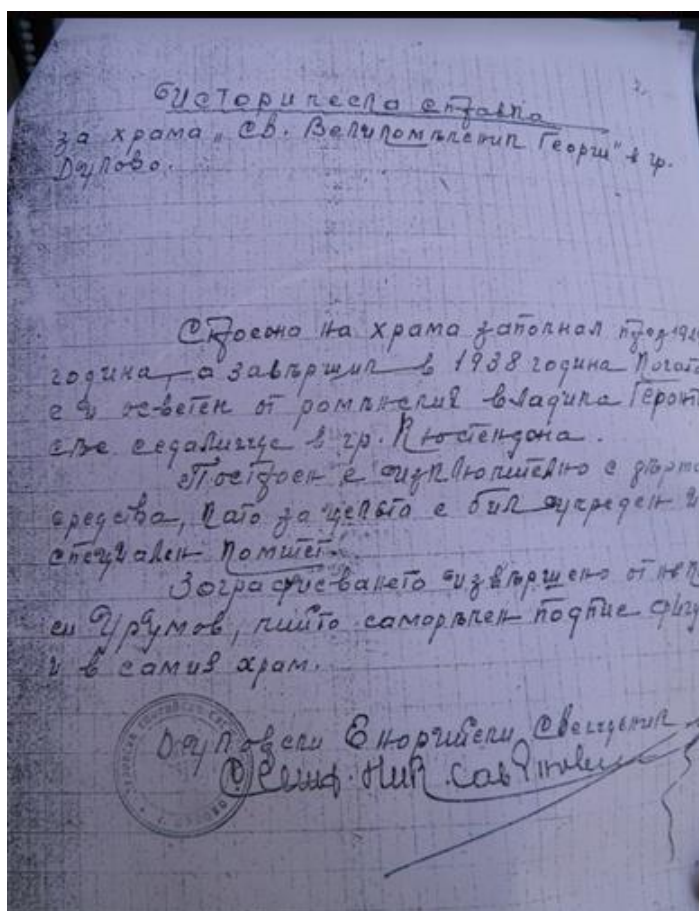 2.
Историческа справка
за храма „Св. Великомъченик Георги" в гр.
Дулово.
Строежа на храма започнал през
година, а завършил в 1938 година кога
е и осветен от ромънския владика Геронт
със седалище в гр. Кюстенджа.
Построен е изключително с държ
средства, като за целта е бил учреден и
специален комитет.
Зографисването извършено от
си Урумов, чийто саморъчен подпис фиг
и в самия храм.
Дуловски Енорийски Свещеник
Свещ. Ник.